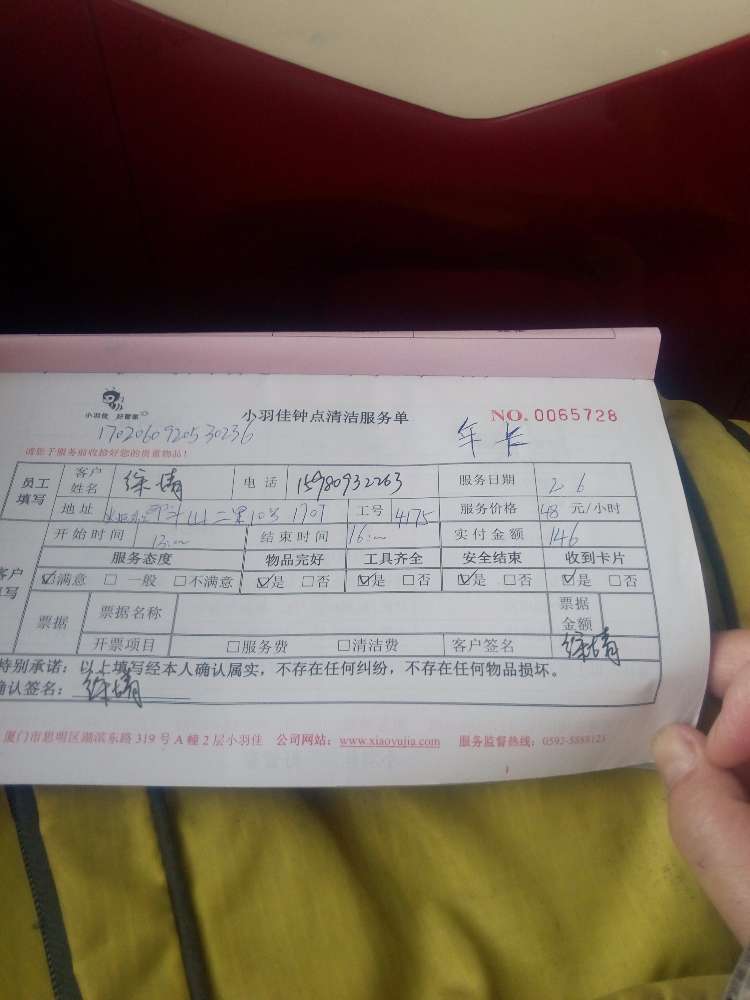 小羽佳 好管家
小羽佳钟点清洁服务单
NO. 0065728
1702060920530236
年卡
请您于服务前收拾好您的贵重物品!
员工填写 客户姓名 徐婧 电话 15980932263 服务日期 2 6
地址 二里10号 1707 工号 4175 服务价格 48 元/小时
开始时间 13:00 结束时间 16:00 实付金额 146
客户填写 服务态度 物品完好 工具齐全 安全结束 收到卡片
☑满意 □一般 □不满意 ☑是 □否 ☑是 □否 ☑是 □否 ☑是 □否
票据 票据名称 票据金额
开票项目 □服务费 □清洁费 客户签名 徐婧
特别承诺：以上填写经本人确认属实，不存在任何纠纷，不存在任何物品损坏。
确认签名：徐婧
厦门市思明区湖滨东路 319 号 A 幢 2 层小羽佳 公司网站：www.xiaoyujia.com 服务监督热线：0592-5888123